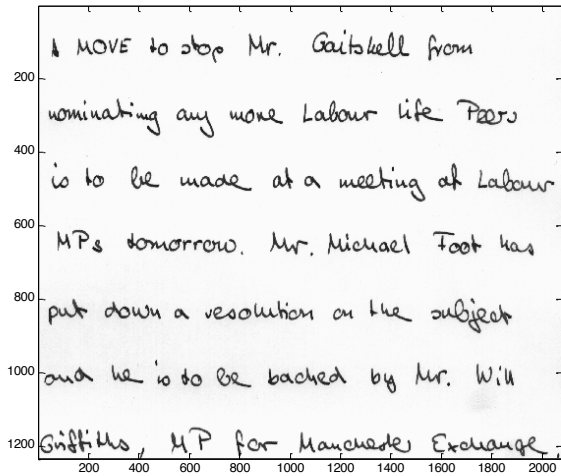 A MOVE to stop Mr. Gaitskell from
nominating any more Labour life Peers
is to be made at a meeting of Labour
MPs tomorrow. Mr. Michael Foot has
put down a resolution on the subject
and he is to be backed by Mr. Will
Griffiths, MP for Manchester Exchange.
200
400
600
800
1000
1200
200 400 600 800 1000 1200 1400 1600 1800 2000